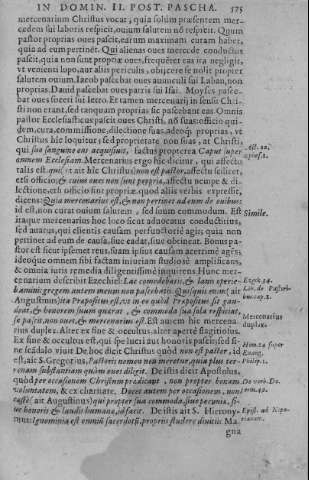 IN DOMIN. II. POST. PASCHA. 575
mercenarium Christus vocat, quia solum præsentem mer-
cedem sui laboris respicit, ouium salutem nō respicit. Quum
pastor proprias oues pascit, earum maximam curam habet,
quia ad eum pertinet. Qui alienas oues mercede conductus
pascit, quia non sunt propriæ oues, frequēter eas ita negligit,
vt venienti lupo, aut aliis periculis, obijcere se nolit propter
salutem ouium. Iacob pascebat oues auunculi sui Laban, non
proprias. Dauid pascebat oues parris sui Isai. Moyses pasce-
bat oues soceri sui Ietro. Et tamen mercenarij in sensu Chri-
sti non erant, sed tanquam proprias sic pascebant eas. Omnis
pastor Ecclesiasticus pascit oues Christi, nō suas officio qui-
dem, cura, commissione, dilectione suas, adeoq́; proprias, vt
Christus hîc loquitur, sed proprietate non suas, at Christi,
qui suo sanguine eas acquisiuit, factus propterea Caput super
omnem Ecclesiam. Mercenarius ergo hîc dicitur, qui affectu
talis est (ait hîc Christus) non est pastor, affectu scilicet,
etsi officio, & cuius oues non sunt propriæ, affectu nempe & di-
lectione, etsi officio sint propriæ, quod aliis verbis expressit,
dicens: Quia mercenarius est, & non pertinet ad eum de ouibus:
id est, non curat ouium salutem, sed suum commodum. Est Simile.
itaque mercenarius hoc loco sicut aduocatus conductitius,
sed auarus, qui clientis causam perfuctoriè agit, quia non
pertinet ad eum de causa, siue cadat, siue obtineat. Bonus pa-
stor est sicut ipsemet reus, suam ipsius causam acerrimè agēs,
ideoque omnem sibi factam iniuriam studiosè amplificans,
& omnia iuris remedia diligentissimè inquirens. Hunc mer-
cenarium describit Ezechiel: Lac comedebatis, & lanis operie-
bamini: gregem autem meum non pascebatis.
Augustinus) ita Præpositus est, vt in eo quòd Præpositus sit gau-
deat, & honorem suum quærat, & commoda sua sola respiciat,
se pascit, non oues, & mercenarius est. Est autem hic mercena- Mercenarius
rius duplex. Alter ex sine & occultus, alter apertè flagitiosus. duplex.
Ex sine & occultus est, qui spe lucri aut honoris pascit, si-
ne scādalo viuit. De hoc dicit Christus quòd non est pastor,
est, ait S. Gregorius, Pastoris nomen non meretur, quia plus ter-
renam substantiam quàm oues diligit. De istis dicit Apostolus,
quòd per occasionem Christum prædicant, non propter bonam
voluntatem, & ex charitate. Docet autem per occasionem, non
castè (ait Augustinus) qui propter sua commoda, siue pecunia, si-
ue honoris & laudis humanæ, id facit. De istis ait S. Hierony-
mus: Ignominia est omniū sacerdotū, propriis studere diuitiis. Ma-
gna